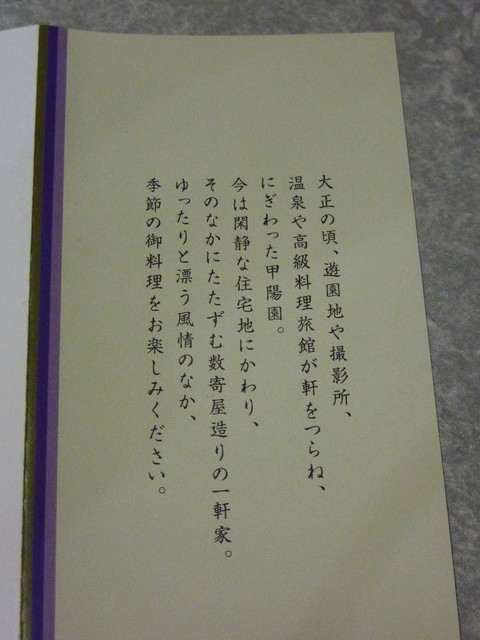 大正の頃、遊園地や撮影所、
温泉や高級料理旅館が軒をつらね、
にぎわった甲陽園。
今は閑静な住宅地にかわり、
そのなかにたたずむ数寄屋造りの一軒家。
ゆったりと漂う風情のなか、
季節の御料理をお楽しみください。